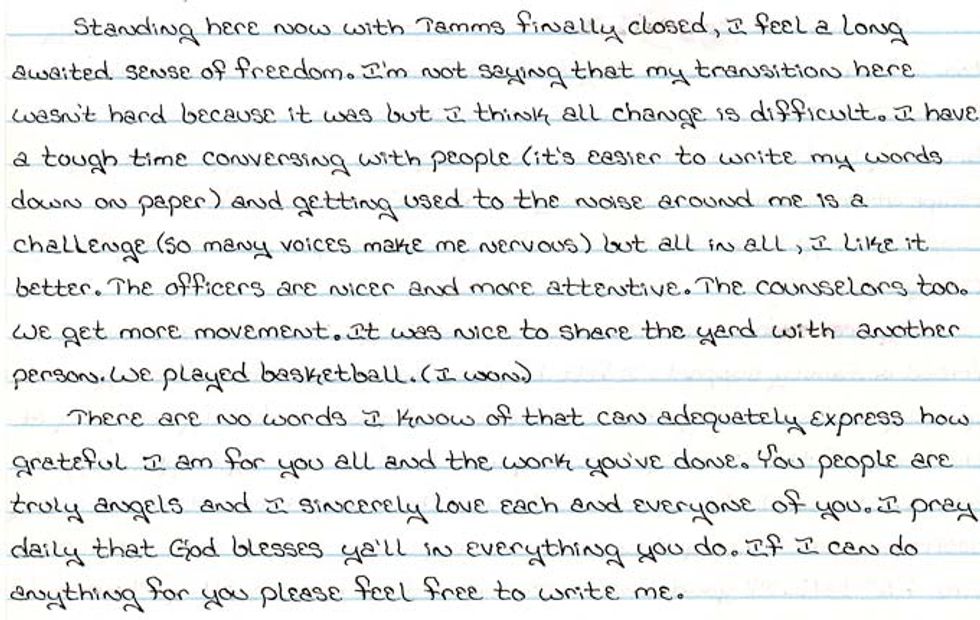 Standing here now with Tamms finally closed, I feel a long
awaited sense of freedom. I'm not saying that my transition here
wasn't hard because it was but I think all change is difficult. I have
a tough time conversing with people (it's easier to write my words
down on paper) and getting used to the noise around me is a
challenge (so many voices make me nervous) but all in all, I like it
better. The officers are nicer and more attentive. The counselors too.
We get more movement. It was nice to share the yard with another
person. We played basketball. (I won)
There are no words I know of that can adequately express how
grateful I am for you all and the work you've done. You people are
truly angels and I sincerely love each and everyone of you. I pray
daily that God blesses ya'll in everything you do. If I can do
anything for you please feel free to write me.